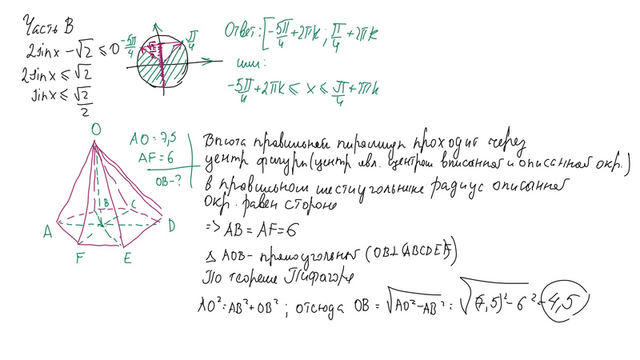 Часть В
2sinx - √2 ≤ 0
2sinx ≤ √2
sinx ≤ √2/2
-5π/4
π/4
Ответ: [-5π/4 + 2πk; π/4 + 2πk
или:
-5π/4 + 2πk ≤ x ≤ π/4 + 2πk
O
A
B
C
D
F
E
AO = 7,5
AF = 6
OB - ?
Высота правильной пирамиды проходит через
центр фигуры (центр явл. центром вписанной и описанной окр.)
В правильном шестиугольнике радиус описанной
окр. равен стороне
=> AB = AF = 6
△ AOB - прямоугольный (OB⊥(ABCDEF))
По теореме Пифагора
AO² = AB² + OB² ; отсюда OB = √AO² - AB² = √(7,5)² - 6² = 4,5